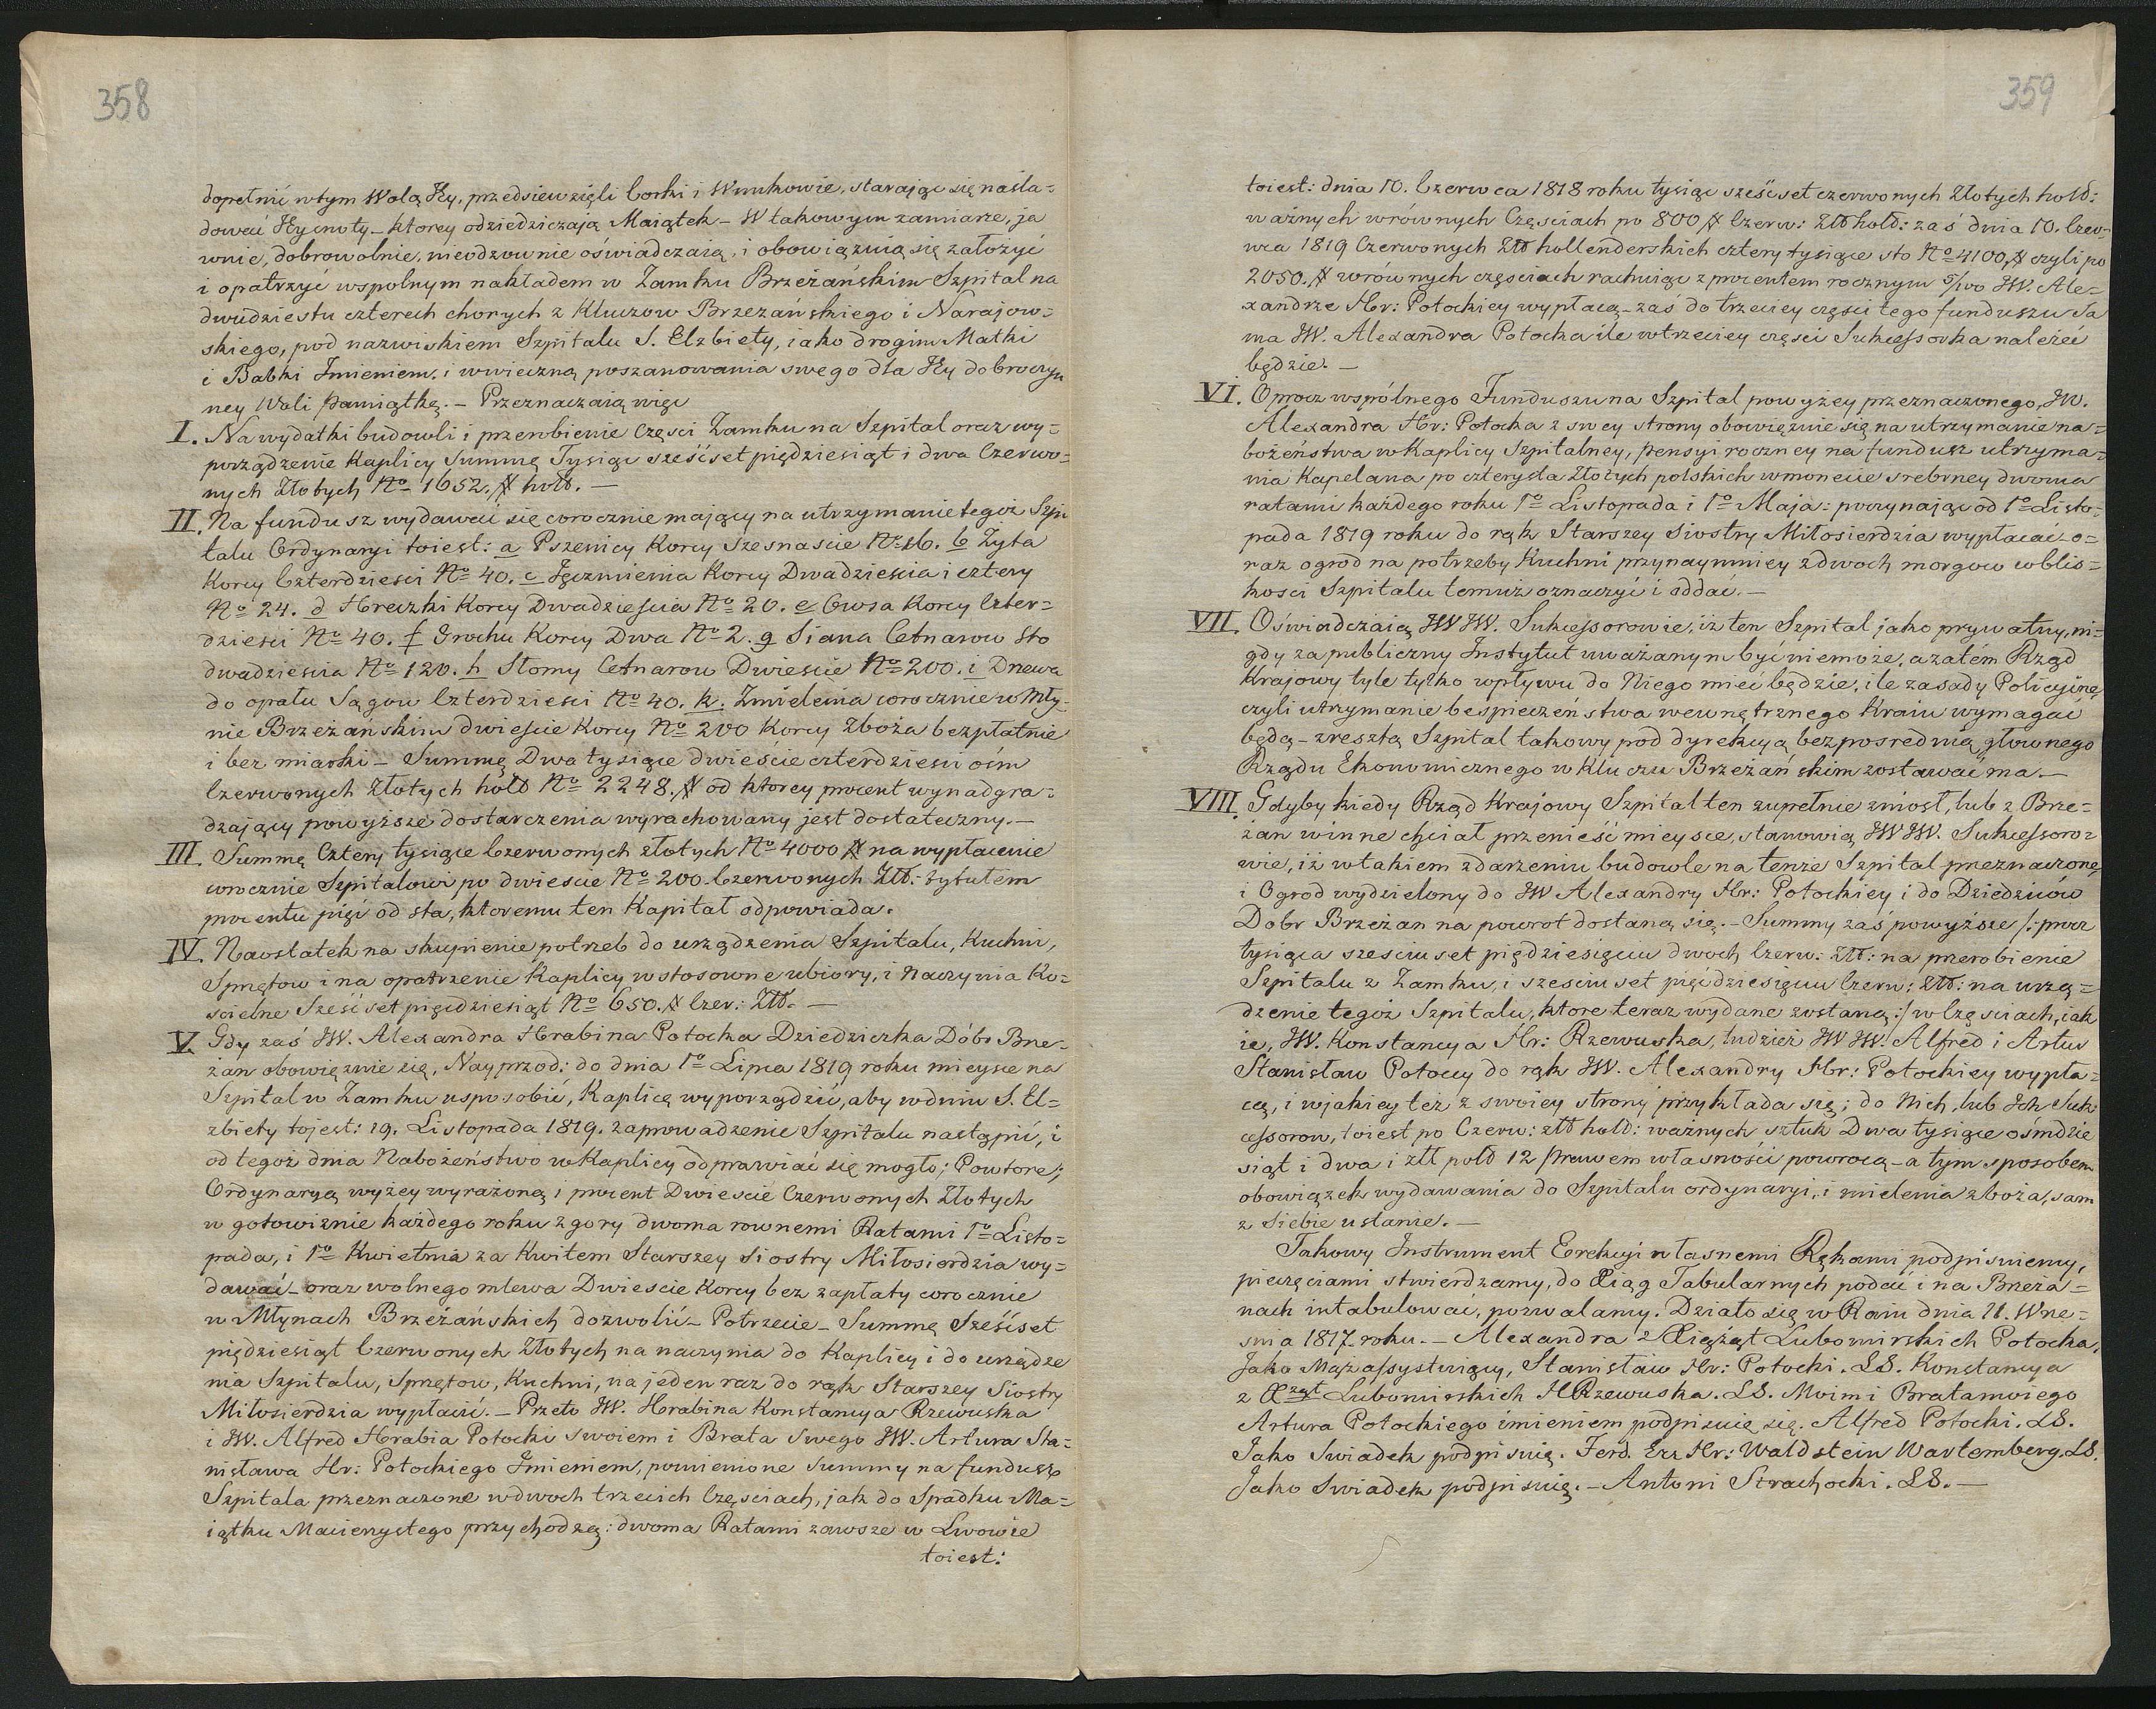 358
dopełnić wtym Wolą Jéy, przedsiewzięli Corki i Wnukowie, starając się naśla-
dować Jéy cnoty – ktorey odziedziczają Maiątek – W takowym zamiarze, ja
wnie, dobrowolnie, nieodzownie oświadczaią, i obowiązuią się założyć
i opatrzyć wspolnym nakładem w Zamku Brzeżańskim Szpital na
dwudziestu czterech chorych z Kluczow Brzezańskiego i Narajow-
skiego, pod nazwiskiem Szpitalu S. Elzbiety, iako drogim Matki
i Babki Imieniem, i wwieczną poszanowania swego dla Jéy dobroczyn
ney Woli pamiątkę. – Przeznaczaią więc
I. Na wydatki budowli i przerobienie Części Zamku na Szpital oraz wy-
porządzenie Kaplicy Summę Tysiąc sześćset pięździesiąt i dwa Czerwo-
nych Złotych No 1652. # holl. –
II. Na fundusz wydawać się corocznie mający na utrzymanie tegoż Szpi
talu Ordynaryi toiest: a Pszenicy Korcy Szesnascie No 16. b Żyta
Korcy Czterdziesci No 40. c Jęczmienia Korcy Dwadziescia i cztery
No 24. d Hreczki Korcy Dwadziescia No 20. e Owsa Korcy Czter-
dziesci No 40. f Grochu Korcy Dwa No 2. g Siana Cetnarow Sto
dwadziescia No 120. h Słomy Cetnarow Dwiescie No 200. i Drzewa
do opału Sągow Czterdziesci No 40. k. Zmielenia corocznie w Mły-
nie Brzeżanskim dwiescie Korcy No 200 Korcy Zboża bezpłatnie
i bez miarki – Summę Dwa tysiące dwieście czterdziesci óśm
Czerwonych Złotych holl No 2248. # od ktorey procent wynadgra-
dzający powyższe dostarczenia wyrachowany jest dostateczny. –
III. Summę Cztery tysiące Czerwonych złotych No 4000 # na wypłacenie
corocznie Szpitalowi po dwiescie No 200. Czerwonych Złł: tytułem
procentu pięć od sta, ktoremu ten Kapitał odpowiada.
IV. Naostatek na skupienie potrzeb do urządzenia Szpitalu, Kuchni,
Sprzętow i na opatrzenie Kaplicy w stosowne ubiory, i Naczynia Ko-
scielne Sześćset pięćdziesiąt No 650. # Czer: Złł. –
V. Gdy zaś JW. Alexandra Hrabina Potocka Dziedziczka Dóbr Brze-
żan obowięzuie się, Nayprzod: do dnia 1o Lipca 1819 roku mieysce na
Szpital w Zamku usposobić, Kaplicę wyporządzić, aby wdniu S. El-
zbiety tojest: 19. Listopada 1819. zaprowadzenie Szpitalu nastąpić, i
od tegoż dnia Nabożeństwo w Kaplicy odprawiać się mogło; Powtore;
Ordynaryą wyżey wyrażoną i procent Dwiescie Czerwonych Złotych
w gotowiznie każdego roku z gory dwoma rownemi Ratami 1o Listo-
pada, i 1o Kwietnia za Kwitem Starszey Siostry Miłosierdzia wy-
dawać – oraz wolnego mlewa Dwiescie Korcy bez zapłaty corocznie
w Młynach Brzéżańskich dozwolić – Potrzecie – Summę Sześćset
pięździesiąt Czerwonych Złotych na naczynia do Kaplicy i do urządze
nia Szpitalu, Sprzętow, Kuchni, na jeden raz do rąk Starszey Siostry
Miłosierdzia wypłacić. – Przeto JW. Hrabina Konstancya Rzewuska
i JW. Alfred Hrabia Potocki swoiem i Brata Swego JW. Artura Sta-
nisława Hr: Potockiego Imieniem, pomienione Summy na fundusz
Szpitala przeznaczone wdwoch trzecich Częsciach, jak do Spadku Ma-
iątku Macierzystego przychodzą: dwoma Ratami zawsze w Lwowie
toiest:
359
toiest: dnia 10. Czerwca 1818 roku tysiąc sześćset czerwonych Złotych holl:
ważnych wrównych Częsciach po 800 # Czerw: Złł holl: zaś dnia 10. Czer-
wca 1819 Czerwonych Złł hollenderskich cztery tysiące sto No 4100, # czyli po
2050. # wrównych częsciach rachuiąc z procentem rocznym 5/100 JW. Ale-
xandrze Hr: Potockiey wypłacą – zaś do trzeciey częsci tego funduszu Sa
ma JW. Alexandra Potocka ile wtrzeciey częsci Sukcessorka należéć
będzie. –
VI. Oprocz wspólnego Funduszu na Szpital powyżey przeznaczonego, JW.
Alexandra Hr: Potocka z swey strony obowięzuie się na utrzymanie na-
bożeństwa w Kaplicy Szpitalney, pensyi roczney na fundusz utrzyma-
nia Kapelana po czterysta Złotych polskich w monecie srebrney dwoma
ratami każdego roku 1o Listopada i 1o Maja: poczynając od 1o Listo-
pada 1819 roku do rąk Starszey Siostry Miłosierdzia wypłacać o-
raz ogrod na potrzeby Kuchni przynaymniey z dwoch morgow w blis-
kosci Szpitalu temuż oznaczyć i oddać. –
VII. Oświadczaią JWJW. Sukcessorowie, iż ten Szpital jako prywatny, ni-
gdy za publiczny Instytut uważanym być niemoże, a zatém Rząd
Krajowy tyle tylko wpływu do Niego mieć będzie, ile zasady Policyine
czyli utrzymanie bespieczeństwa wewnętrznego Kraiu wymagać
będą – zresztą Szpital takowy pod dyrekcyą bezposrednią głownego
Rządu Ekonomicznego w Kluczu Brzeżańskim zostawać ma. –
VIII. Gdyby kiedy Rząd Krajowy Szpital ten zupełnie zniosł, lub z Brze-
żan w inne chciał przenieść mieysce, stanowią JWJW. Sukcessoro-
wie, iż wtakiem zdarzeniu budowle na tenże Szpital przeznaczone,
i Ogrod wydzielony do JW Alexandry Hr: Potockiey i do Dziedziców
Dobr Brzeżan na powrot dostaną się. – Summy zaś powyższe /: procz
tysiąca szesciuset pięździesięciu dwoch Czerw: Złł: na przerobienie
Szpitalu z Zamku, i szesciuset pięćdziesięciu Czerw: Złł: na urzą-
dzenie tegoż Szpitalu, ktore teraz wydane zostaną :/ wCzęsciach, iak
ie, JW. Konstancya Hr: Rzewuska, tudzież JWJW. Alfred i Artur
Stanisław Potoccy do rąk JW. Alexandry Hr: Potockiey wypła-
cą, i wjakiey też z swoiey strony przykłada się; do Nich, lub Ich Suk
cessorow, toiest po Czerw: złł holl: ważnych sztuk Dwa tysiące ośmdzie
siąt i dwa i złł poll 12 prawem własności powrocą – a tym sposobem
obowiązek wydawania do Szpitalu ordynaryi, i mielenia zboża, sam
z siebie ustanie. –
Takowy Instrument Erekcyi własnemi Rękami podpisuiemy,
pieczęciami stwierdzamy, do Xiąg Tabularnych podać i na Brzeża-
nach intabulować, pozwalamy. Działo się w Raiu dnia 11. Wrze-
snia 1817. roku. – Alexandra z Xiążąt Lubomirskich Potocka,
Jako Mąż assystuiący, Stanisław Hr: Potocki. LS. Konstancya
z Xżąt Lubomirskich HRzewuska. LS. Moim i Brata moiego
Artura Potockiego imieniem podpisuię się. Alfred Potocki. LS.
Jako Swiadek podpisuię. Ferd. Hr: Waldstein Wartemberg. LS.
Jako Swiadek podpisuię. – Antoni Strachocki. LS. –